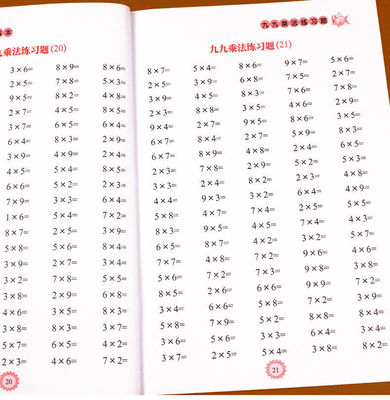 本
九乘法练习题(20)
3×6= 9×5= 8×6=
2×5= 7×8= 5×3=
9×5= 8×2= 4×8=
2×7= 4×5= 8×5=
3×7= 6×5= 6×4=
6×4= 8×3= 2×9=
3×9= 4×9= 2×4=
4×5= 5×4= 8×5=
6×6= 5×2= 2×3=
7×9= 3×3= 6×3=
1×6= 5×4= 7×2=
8×7= 2×5= 3×9=
5×8= 5×6= 8×4=
3×9= 2×7= 3×4=
2×3= 7×8= 5×5=
3×8= 2×9= 6×8=
4×6= 3×5= 8×1=
3×8= 8×3= 3×7=
5×7= 6×5= 4×6=
2×3= 4×6= 7×2=
20
九九乘法练习题
九九乘法练习题(21)
8×7= 5×4= 8×6= 9×7= 5×6=
2×5= 3×9= 6×8= 7×5= 2×7=
3×9= 4×5= 8×3= 7×6= 7×8=
2×3= 8×2= 3×5= 4×6= 2×9=
9×4= 2×7= 9×5= 8×6= 3×6=
6×7= 8×4= 2×7= 5×9= 8×3=
6×7= 8×9= 4×8= 2×4= 6×5=
2×3= 7×8= 2×9= 5×2= 5×3=
3×3= 2×4= 8×2= 2×3= 4×8=
4×4= 9×3= 6×4= 6×4= 4×9=
5×8= 4×7= 7×4= 2×5= 5×5=
8×3= 9×5= 4×5= 7×4= 4×3=
6×5= 8×7= 4×2= 3×2= 5×7=
7×7= 4×8= 3×2= 5×6= 4×4=
5×6= 7×2= 7×3= 9×8= 3×8=
8×5= 2×6= 2×9= 7×7= 3×9=
6×4= 6×6= 5×8= 7×2= 4×8=
5×8= 7×6= 9×3= 3×2= 6×4=
3×6= 5×2= 3×3= 6×4= 3×4=
3×7= 2×5= 5×4= 3×8= 8×2=
21